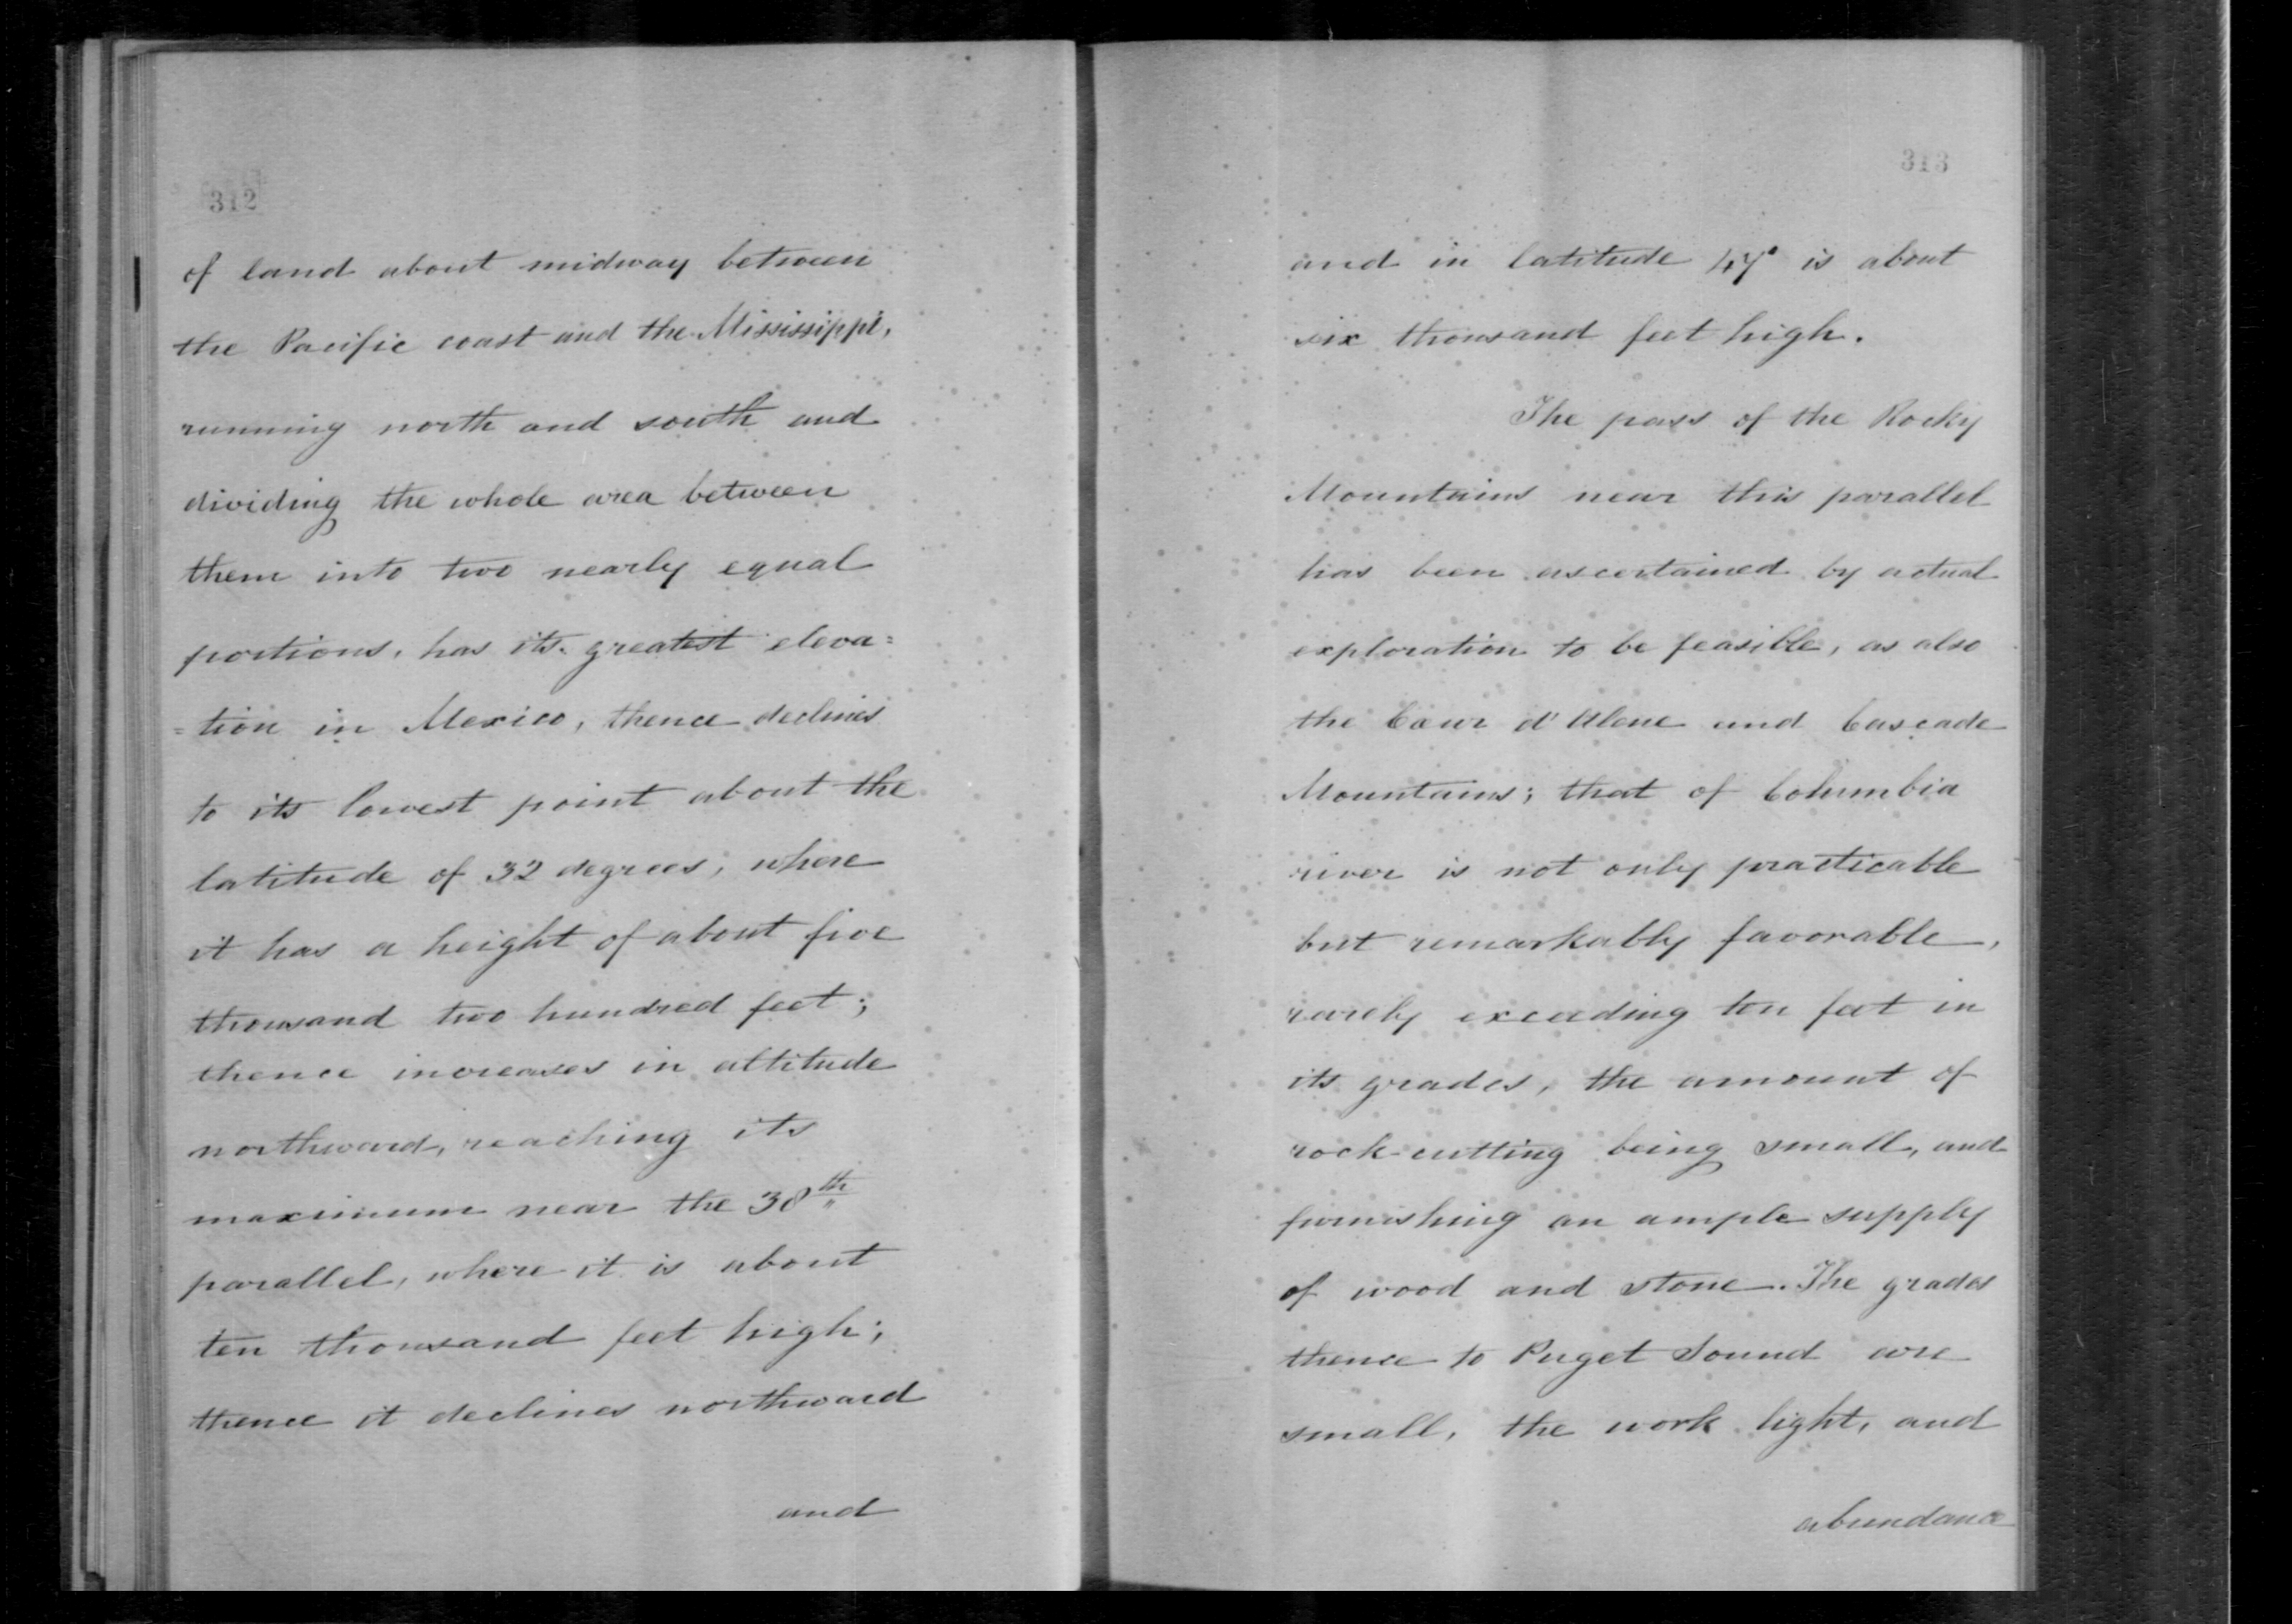 312
of land about midway between
the Pacific coast and the Mississippi,
running north and south and
dividing the whole area between
them into two nearly equal
portions, has its greatest eleva=
=tion in Mexico, thence declines
to its lowest point about the
latitude of 32 degrees, where
it has a height of about five
thousand two hundred feet;
thence increases in altitude
northward, reaching its
maximum near the 38th
parallel, where it is about
ten thousand feet high;
thence it declines northward
and
313
and in latitude 47° is about
six thousand feet high.
The pass of the Rocky
Mountains near this parallel
has been ascertained by actual
exploration to be feasible, as also
the Cœur d'Alene and Cascade
Mountains; that of Columbia
river is not only practicable
but remarkably favorable,
rarely exceeding ten feet in
its grades, the amount of
rock-cutting being small, and
furnishing an ample supply
of wood and stone. The grades
thence to Puget Sound are
small, the work light, and
abundance